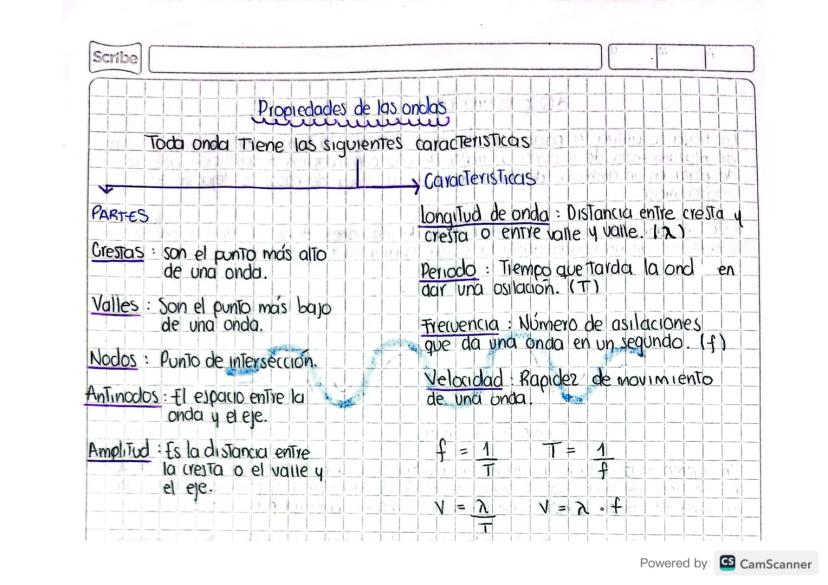 Scribe
Propiedades de las ondas
Toda onda Tiene las siguientes caracteristicas
PARTES
Crestas : son el punto más alto
de una onda.
Valles : Son el punto más bajo
de una onda.
Nodos : Punto de intersección.
Antinodos : El espacio entre la
onda y el eje.
Amplitud : Es la distancia entre
la cresta o el valle y
el eje.
Caracteristicas
Longitud de onda : Distancia entre cresta y
cresta o entre valle y valle. (λ)
Periodo : Tiempo que tarda la ond en
dar una osilación. (T)
Frecuencia : Número de asilaciones
que da una onda en un segundo. (f)
Velocidad : Rapidez de movimiento
de una onda.
f = 1/T T = 1/f
V = λ/T V = λ . f
Powered by CS CamScanner